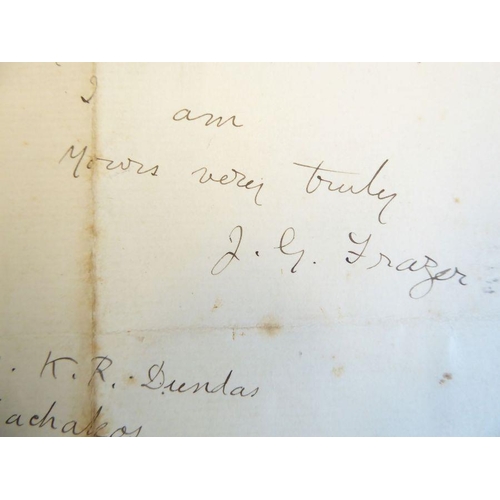 I
am
Yours very truly
J. G. Frazer
K. R. Dundas
Machakos